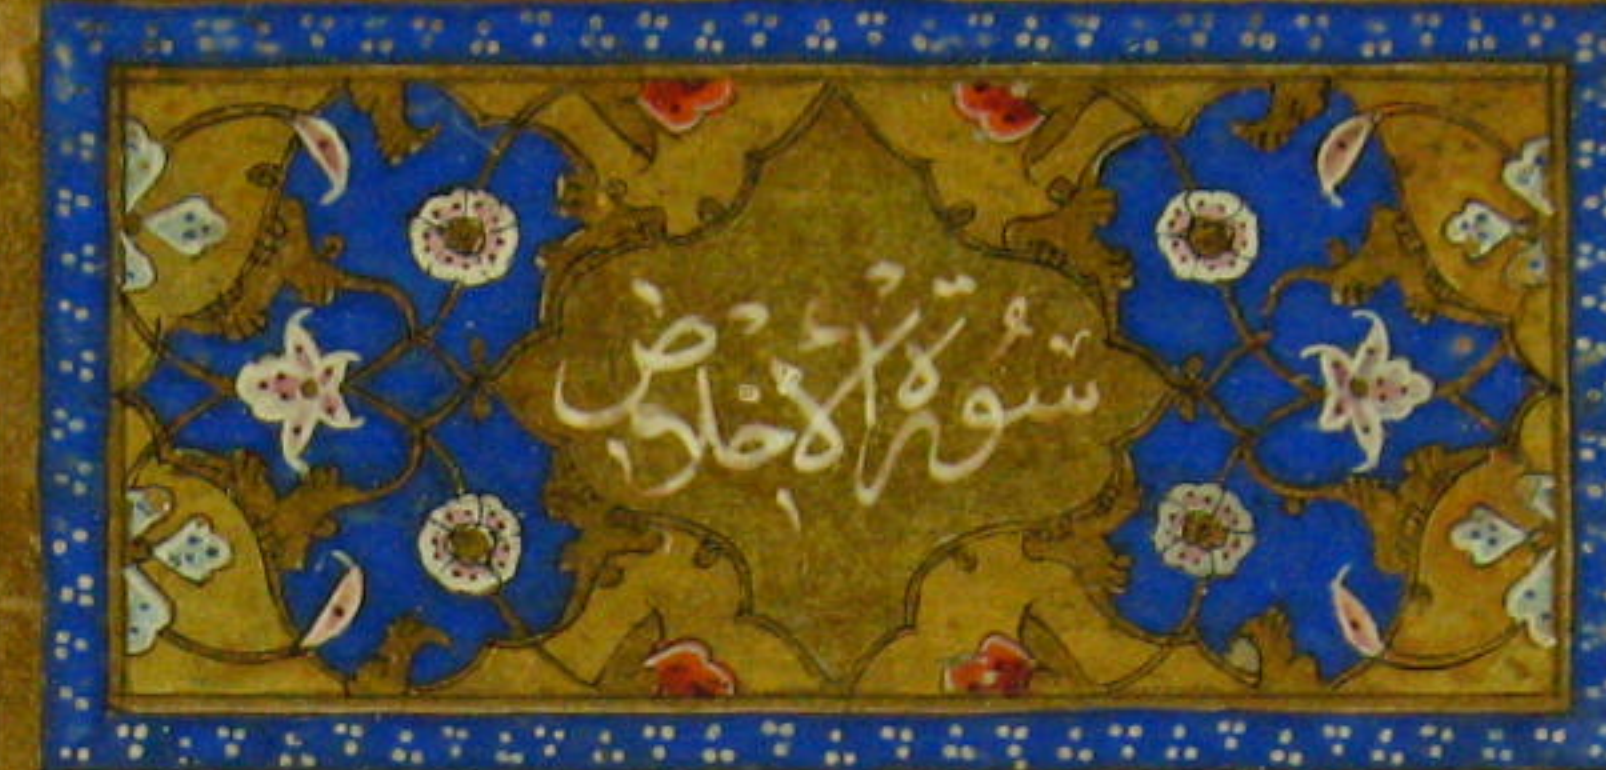 سُورَةُ الْأِخْلَاصِ